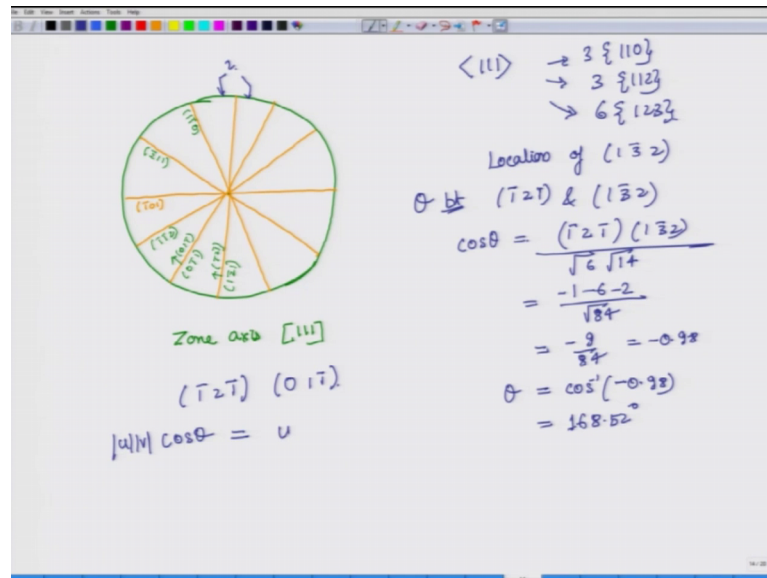 Edit View Insert Actions Tools Help
2
(11̄0)
(2̄11)
(1̄01)
(1̄1̄2)
↑(011̄)
(01̄1)
↑(1̄21̄)
(12̄1)
Zone axis [111]
(1̄21̄) (011̄)
|u||v| cosθ = u
<111> → 3 {110}
→ 3 {112}
↘ 6 {123}
Location of (13̄2)
θ bt (1̄21̄) & (13̄2)
cosθ = (1̄21̄)(13̄2) / √6 √14
= -1-6-2 / √84
= -9/84 = -0.98
θ = cos⁻¹(-0.98)
= 168.52°